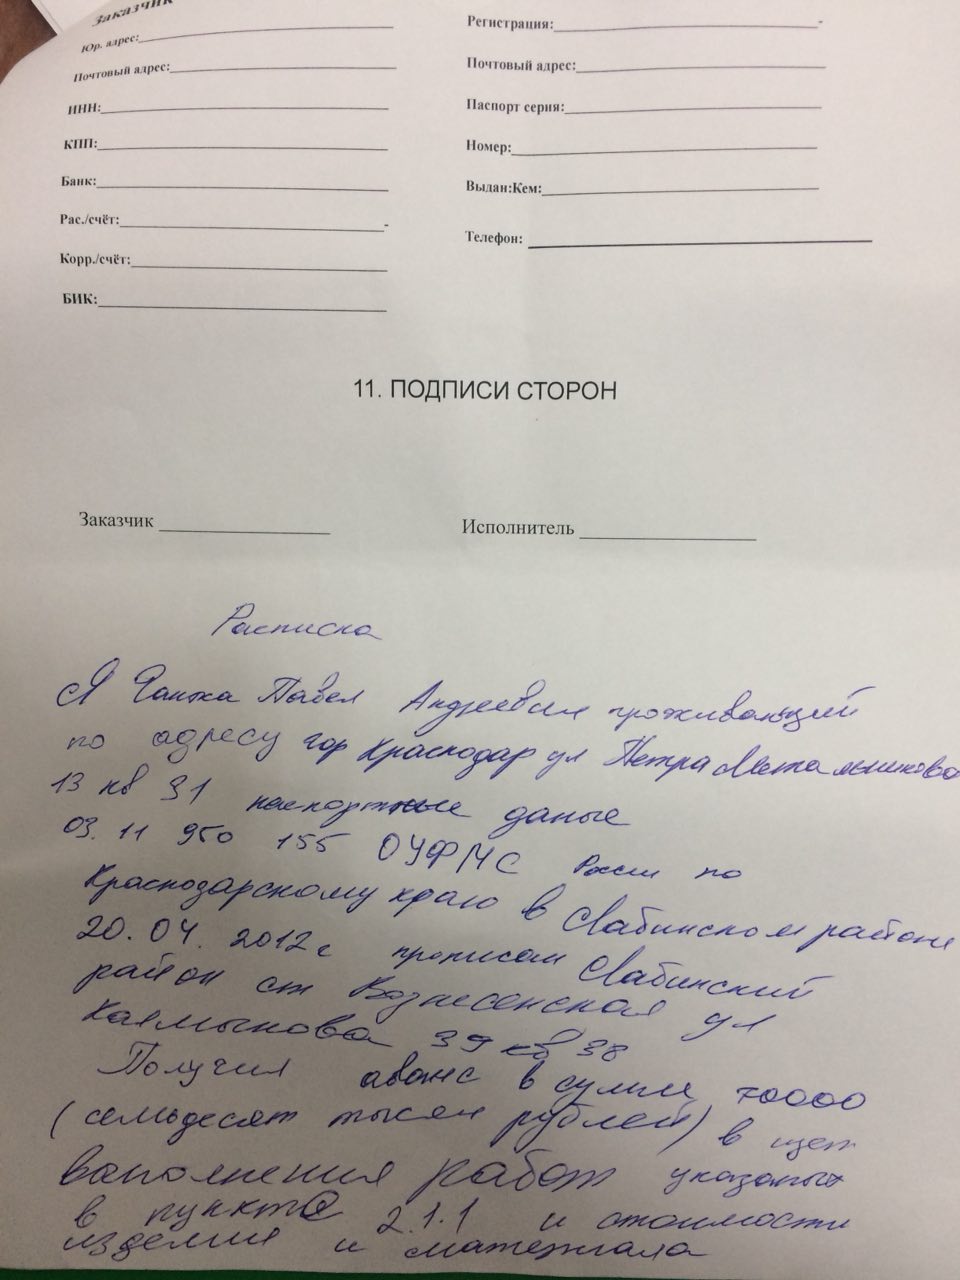 Заказчик
Юр. адрес:
Почтовый адрес:
ИНН:
КПП:
Банк:
Рас./счёт:
Корр./счёт:
БИК:
Регистрация:
Почтовый адрес:
Паспорт серия:
Номер:
Выдан:Кем:
Телефон:
11. ПОДПИСИ СТОРОН
Заказчик Исполнитель
Расписка
Я Павел Андреевич проживающий
по адресу гор Краснодар ул Петра Метальникова
13 кв 31 паспортные даные
03.11 950 155 ОУФМС России по
Краснодарскому краю в Лабинском районе
20.04.2012г прописан Лабинский
район ст Вознесенская ул
Калмыкова 39 кв 38
Получил аванс в сумме 70000
(семьдесят тысяч рублей) в щет
ваполнения работ указаных
в пункте 2.1.1 и стоимости
изделия и материала